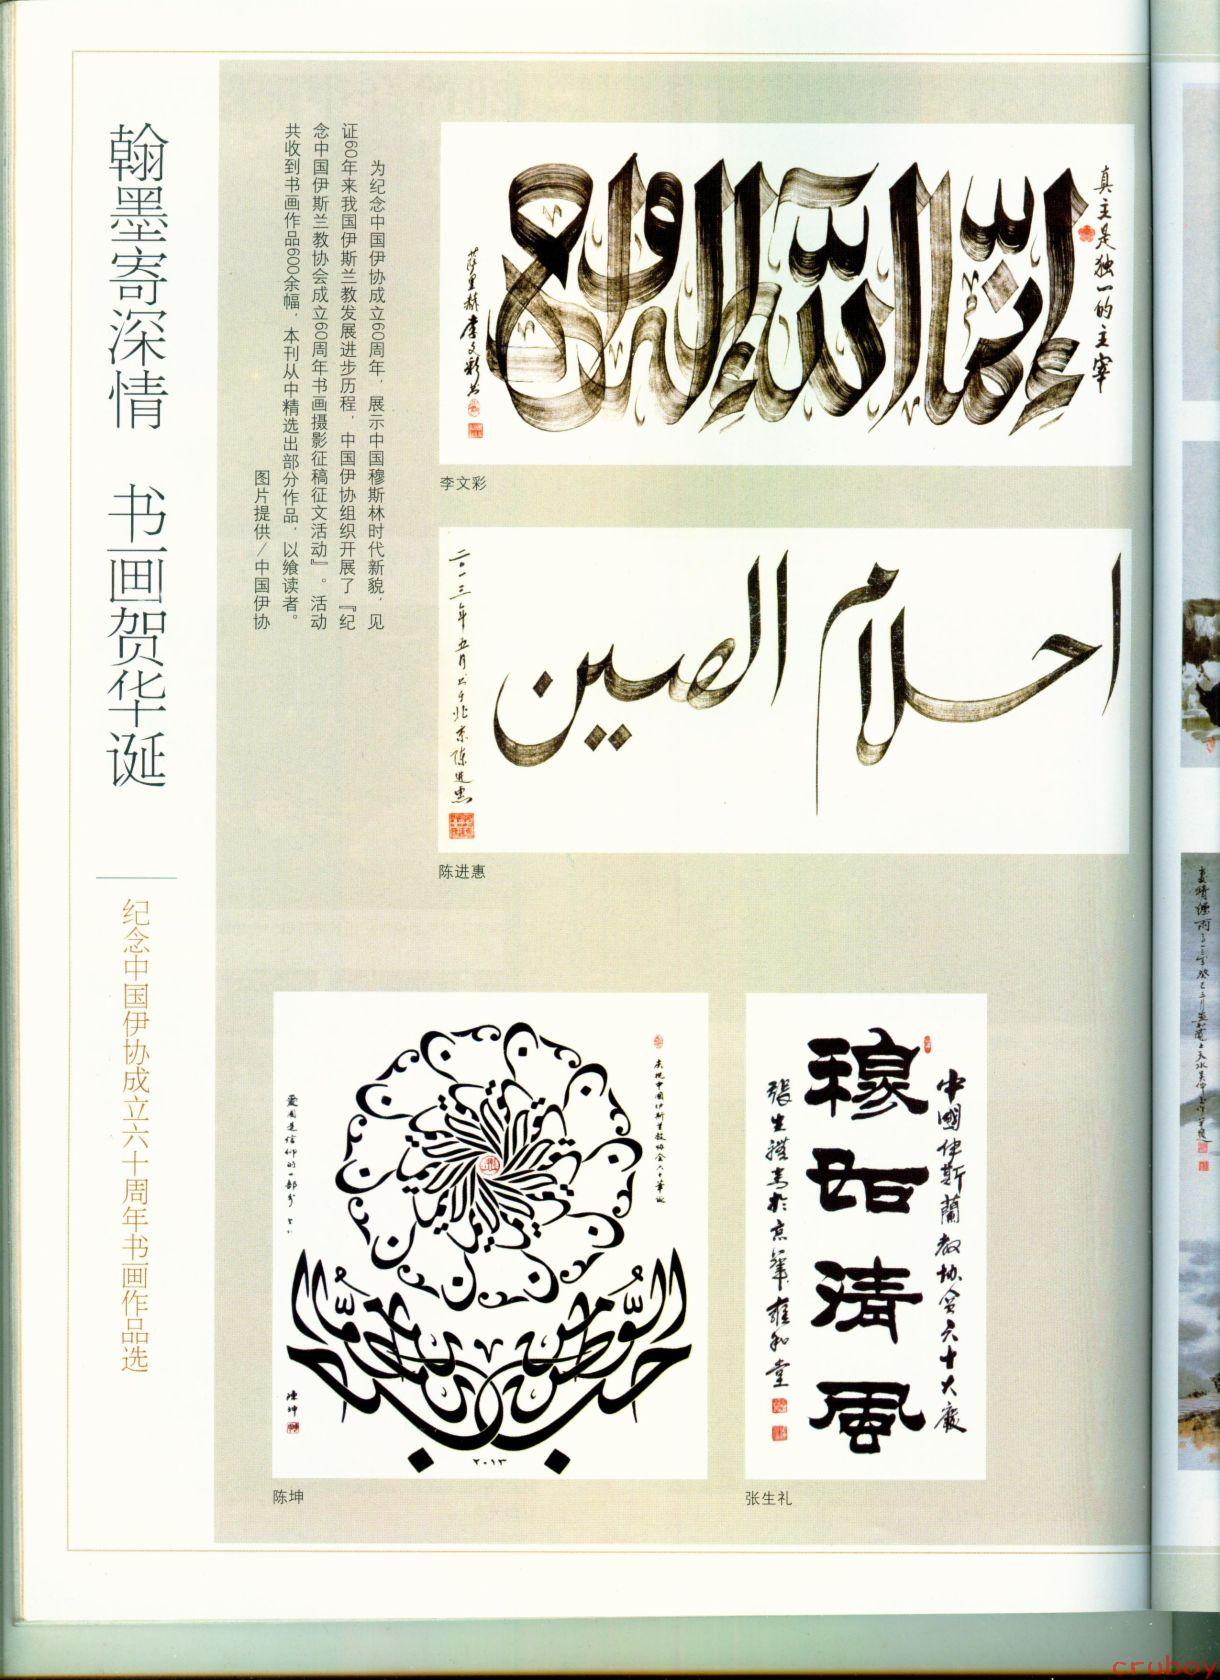 翰墨寄深情 书画贺华诞
纪念中国伊协成立六十周年书画作品选
为纪念中国伊协成立60周年，展示中国穆斯林时代新貌，见
证60年来我国伊斯兰教发展进步历程，中国伊协组织开展了『纪
念中国伊斯兰教协会成立60周年书画摄影征稿征文活动』。活动
共收到书画作品600余幅，本刊从中精选出部分作品，以飨读者。
图片提供／中国伊协
真主是独一的主宰
إنما الله إله واحد
李文彩书
李文彩
احلام الصين
二〇一三年五月书于北京陈进惠
陈进惠
庆祝中国伊斯兰教协会六十华诞
爱国是信仰的一部分
حب الوطن من الإيمان
٢٠١٣
陈坤
陈坤
中國伊斯蘭教协会六十大慶
穆如清风
張生禮書於京華雍和堂
张生礼
cruboy